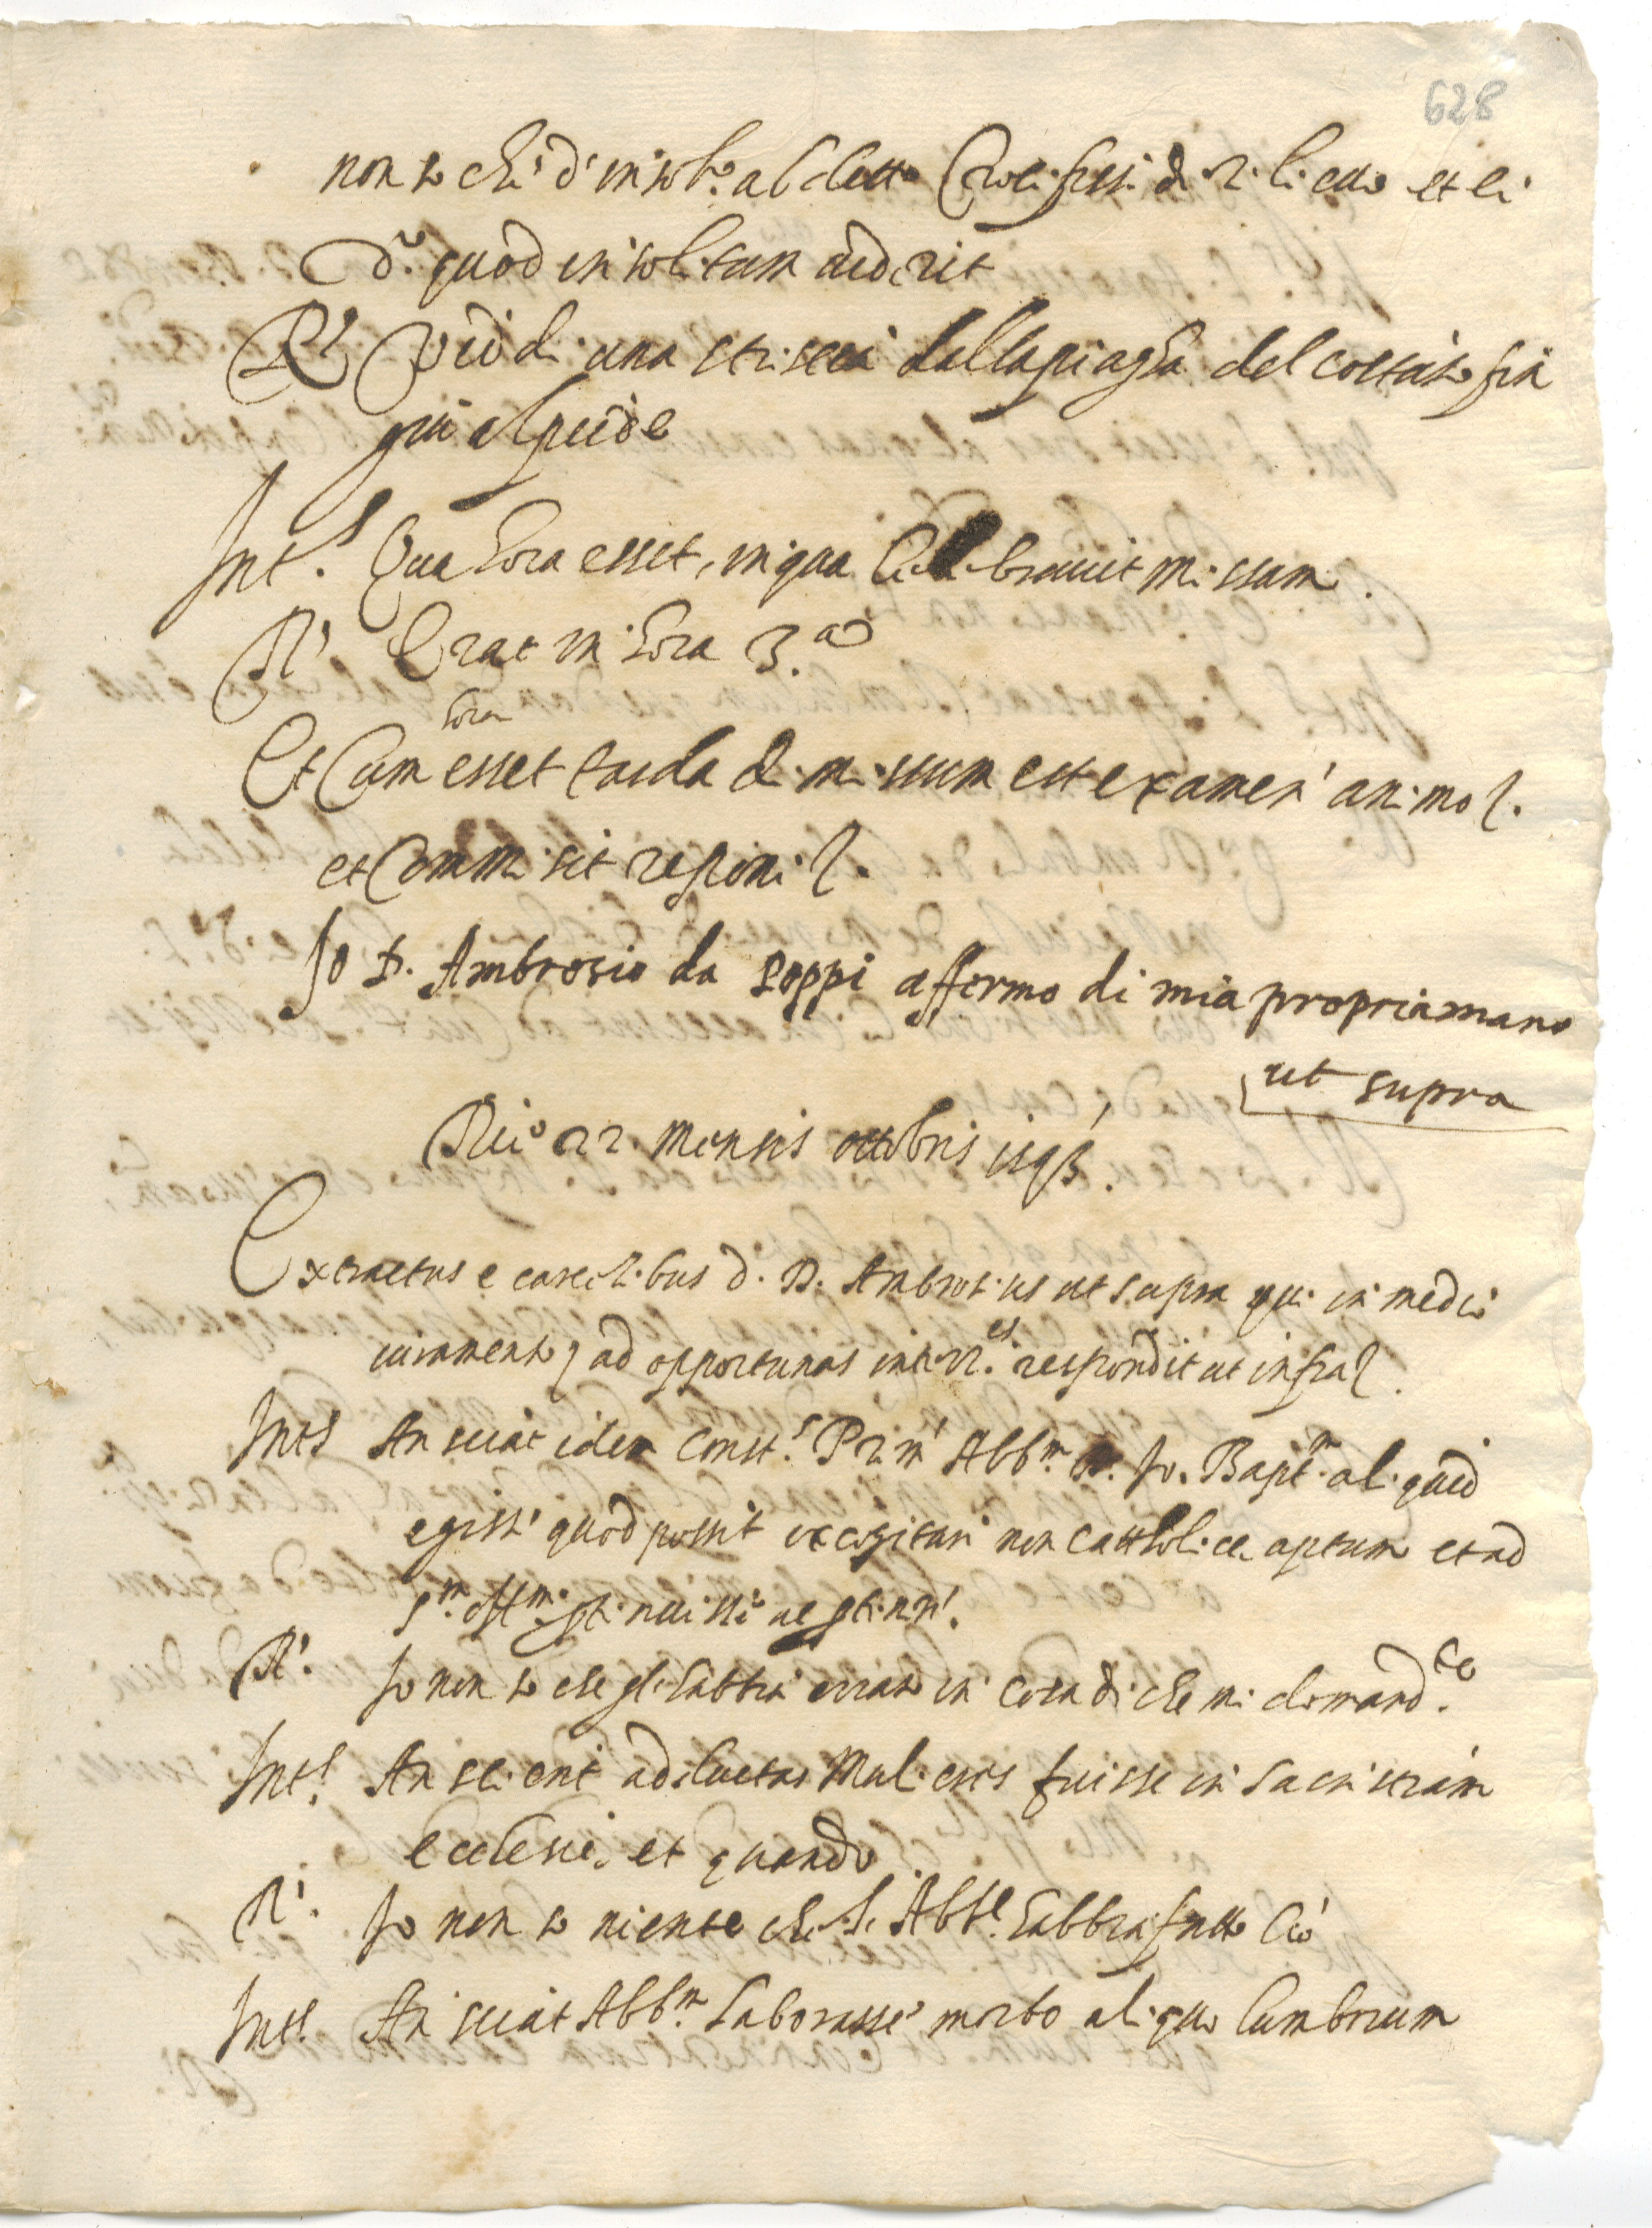 628
non so chi d'insolto al detto Crocifisso di rilievo et ei
d.o quod insolitum viderit
R. Viddi una striscia dalla piagha del costato fin
giù al piede
Int.s Qua hora esset, in qua Celebravit missam.
R. Erat in hora 3.a
hora
Et Cum esset tarda dimissum est examen animo
et Commisit reponi
Io D. Ambrosio da Poppi affermo di mia propria mano
ut supra
Die 22 mensis ottobris
Extractus e carceribus d. D. Ambrosius ut supra qui in medio
iuramento ad opportunas interr.es respondit ut infra
Ints An sciat idem Const.s Abb.m D. Jo. Bapt.m aliquid
egisse quod possit excogitari non cattholice aptum et ad
R. Io non so che gli habbia errato in cosa di che mi domand.te
Int.s An scient adductas Mulieres fuisse in Sacristiam
Ecclesie, et quando
R. Io non so niente che l' Abbe habbia fatto Ciò
Ints An sciat Abb.m Laborasse morbo aliquo lumborum